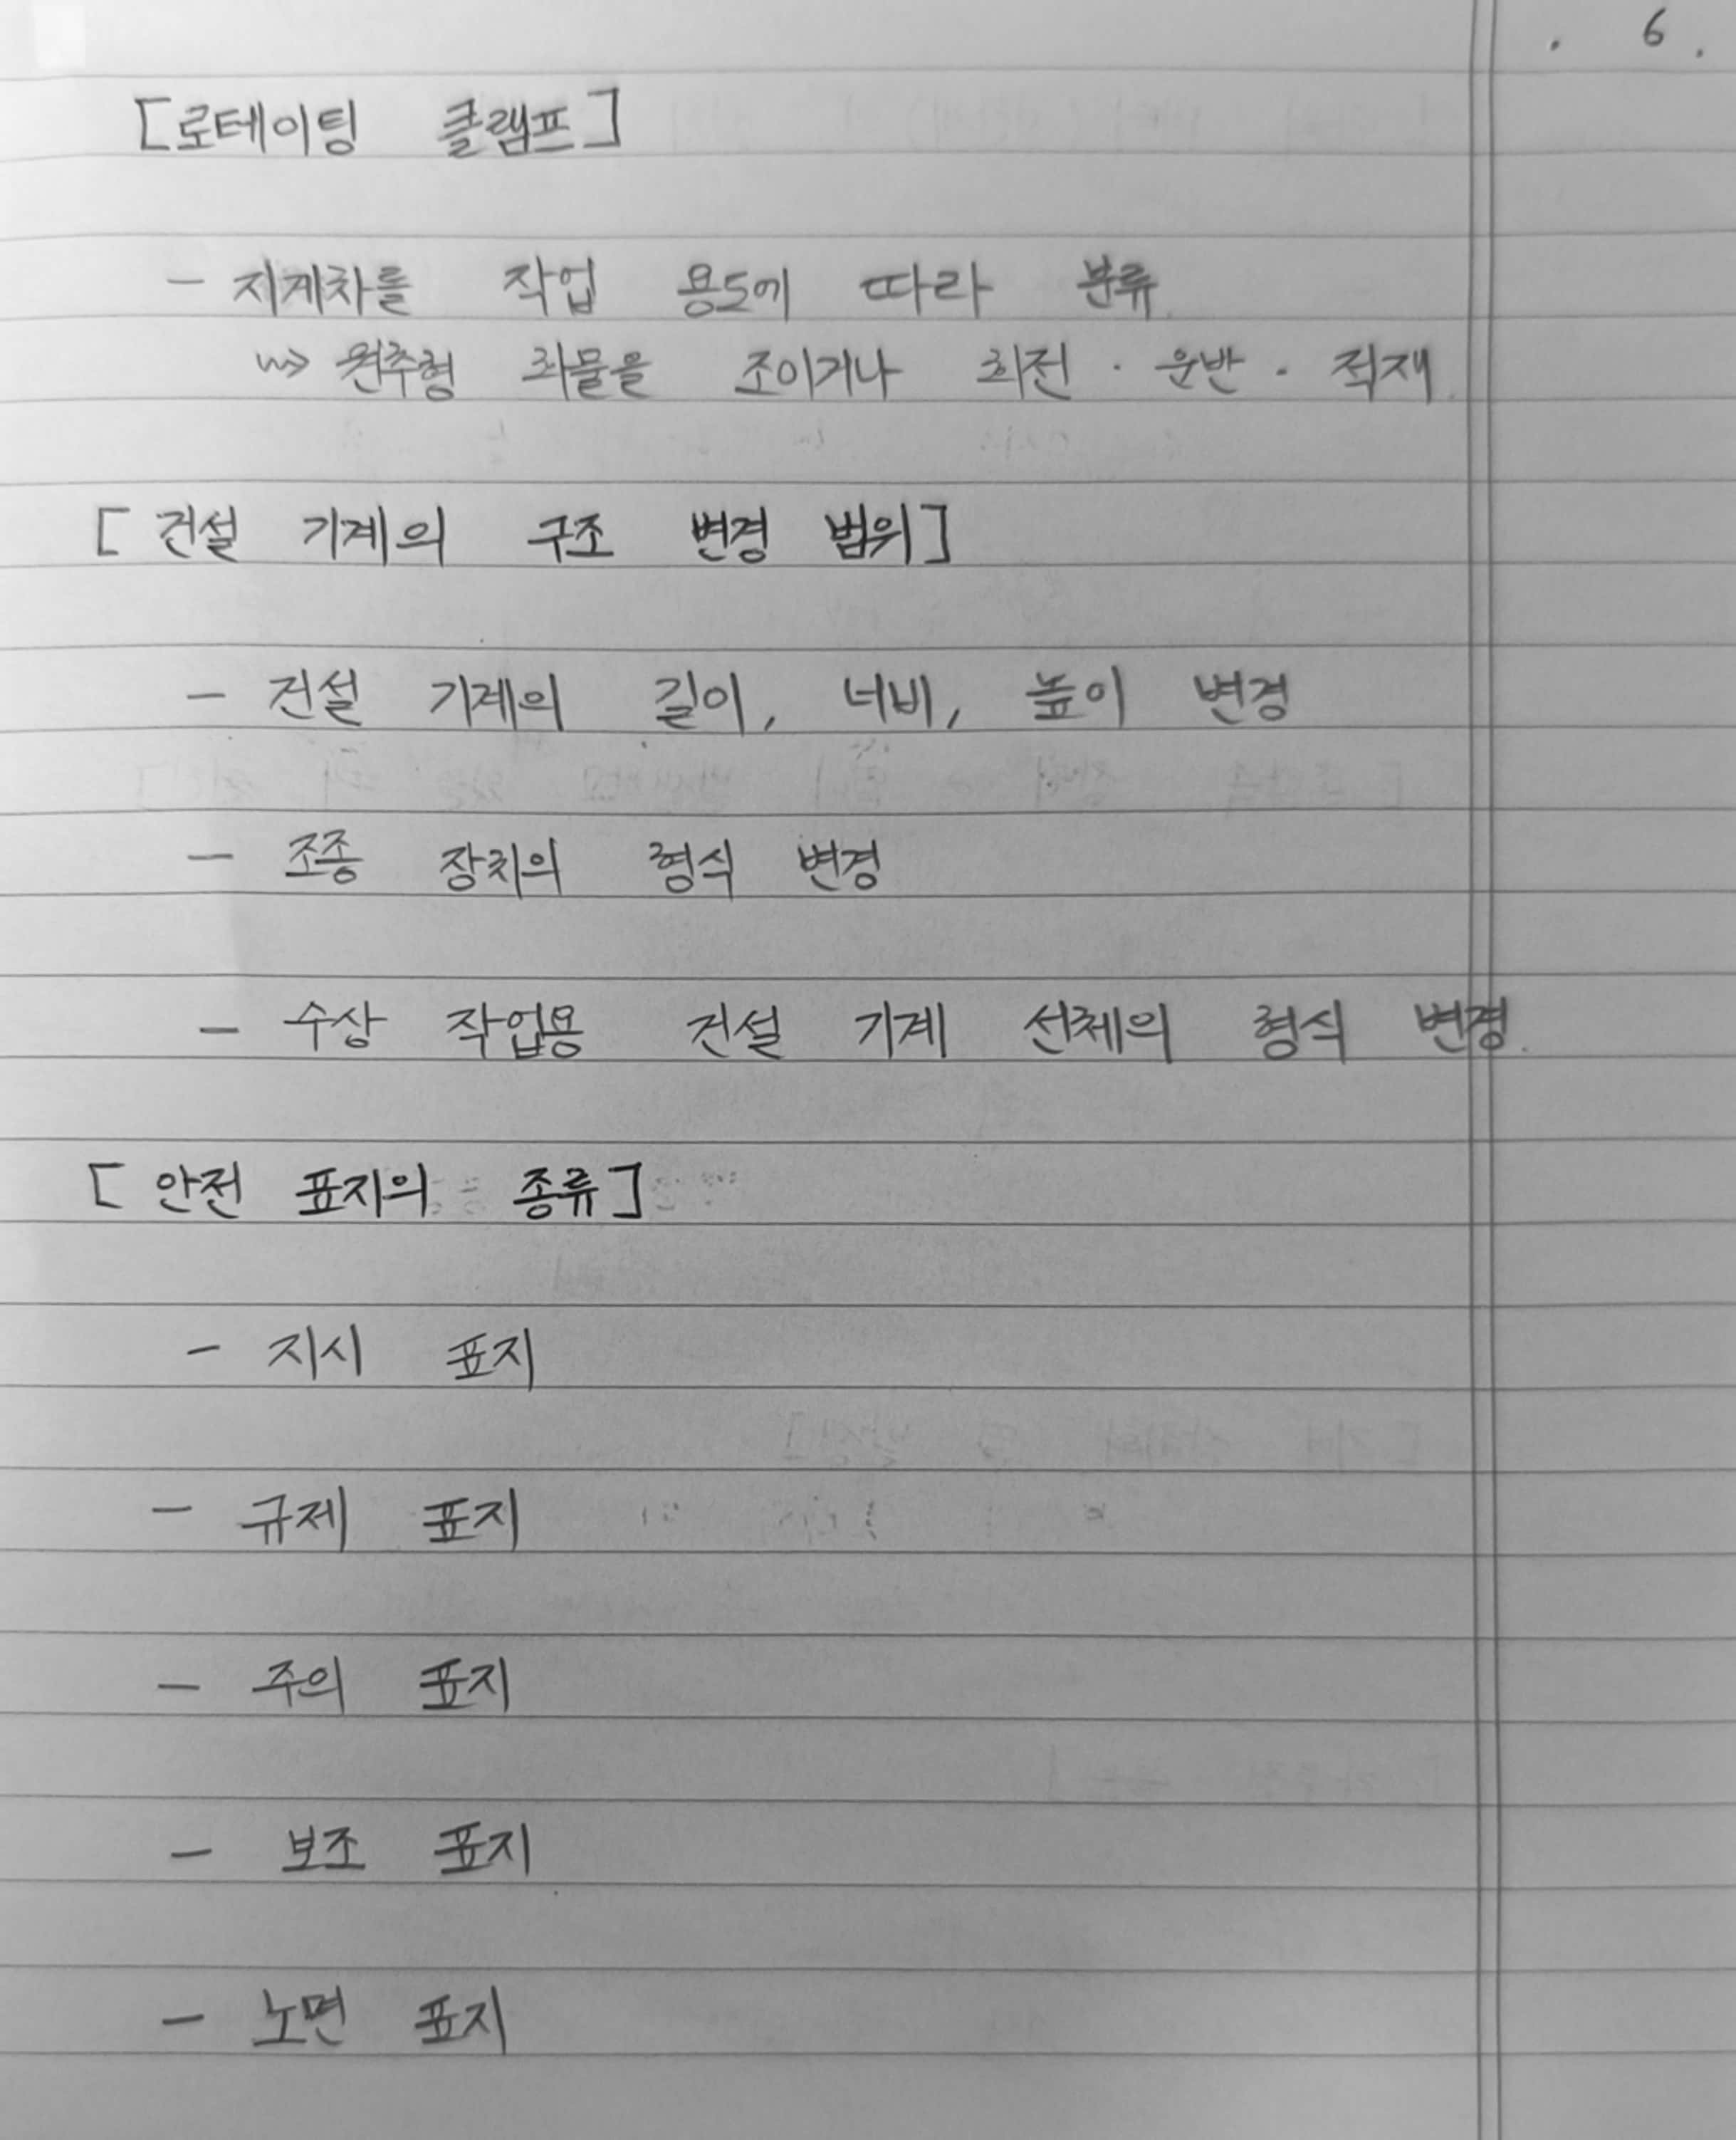 . 6 .
[로테이팅 클램프]
- 지게차를 작업 용도에 따라 분류.
~> 원추형 화물을 조이거나 회전 · 운반 · 적재.
[건설 기계의 구조 변경 범위]
- 건설 기계의 길이, 너비, 높이 변경
- 조종 장치의 형식 변경
- 수상 작업용 건설 기계 선체의 형식 변경.
[안전 표지의 종류]
- 지시 표지
- 규제 표지
- 주의 표지
- 보조 표지
- 노면 표지